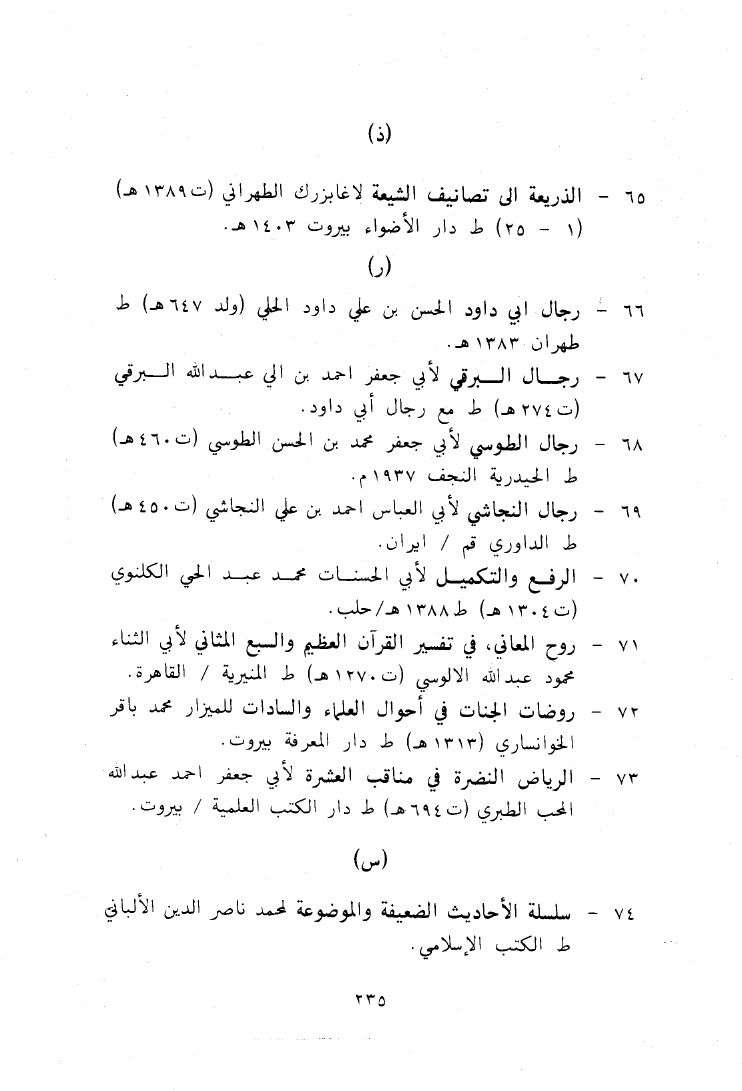 (ذ)
٦٥ – الذريعة الى تصانيف الشيعة لاغابزرك الطهراني (ت ١٣٨٩ هـ)
(١ – ٢٥) ط دار الأضواء بيروت ١٤٠٣ هـ.
(ر)
٦٦ – رجال ابي داود الحسن بن علي داود الحلي (ولد ٦٤٧ هـ) ط
طهران ١٣٨٣ هـ.
٦٧ – رجال البرقي لأبي جعفر احمد بن الي عبدالله البرقي
(ت ٢٧٤ هـ) ط مع رجال أبي داود.
٦٨ – رجال الطوسي لأبي جعفر محمد بن الحسن الطوسي (ت ٤٦٠ هـ)
ط الحيدرية النجف ١٩٣٧ م.
٦٩ – رجال النجاشي لأبي العباس احمد بن علي النجاشي (ت ٤٥٠ هـ)
ط الداوري قم / ايران.
٧٠ – الرفع والتكميل لأبي الحسنات محمد عبد الحي الكلنوي
(ت ١٣٠٤ هـ) ط ١٣٨٨ هـ/حلب.
٧١ – روح المعاني، في تفسير القرآن العظيم والسبع المثاني لأبي الثناء
محمود عبدالله الالوسي (ت ١٢٧٠ هـ) ط المنيرية / القاهرة.
٧٢ – روضات الجنات في أحوال العلماء والسادات للميزار محمد باقر
الخوانساري (١٣١٣ هـ) ط دار المعرفة بيروت.
٧٣ – الرياض النضرة في مناقب العشرة لأبي جعفر احمد عبدالله
المحب الطبري (ت ٦٩٤ هـ) ط دار الكتب العلمية / بيروت.
(س)
٧٤ – سلسلة الأحاديث الضعيفة والموضوعة لمحمد ناصر الدين الألباني
ط الكتب الإسلامي.
٢٣٥